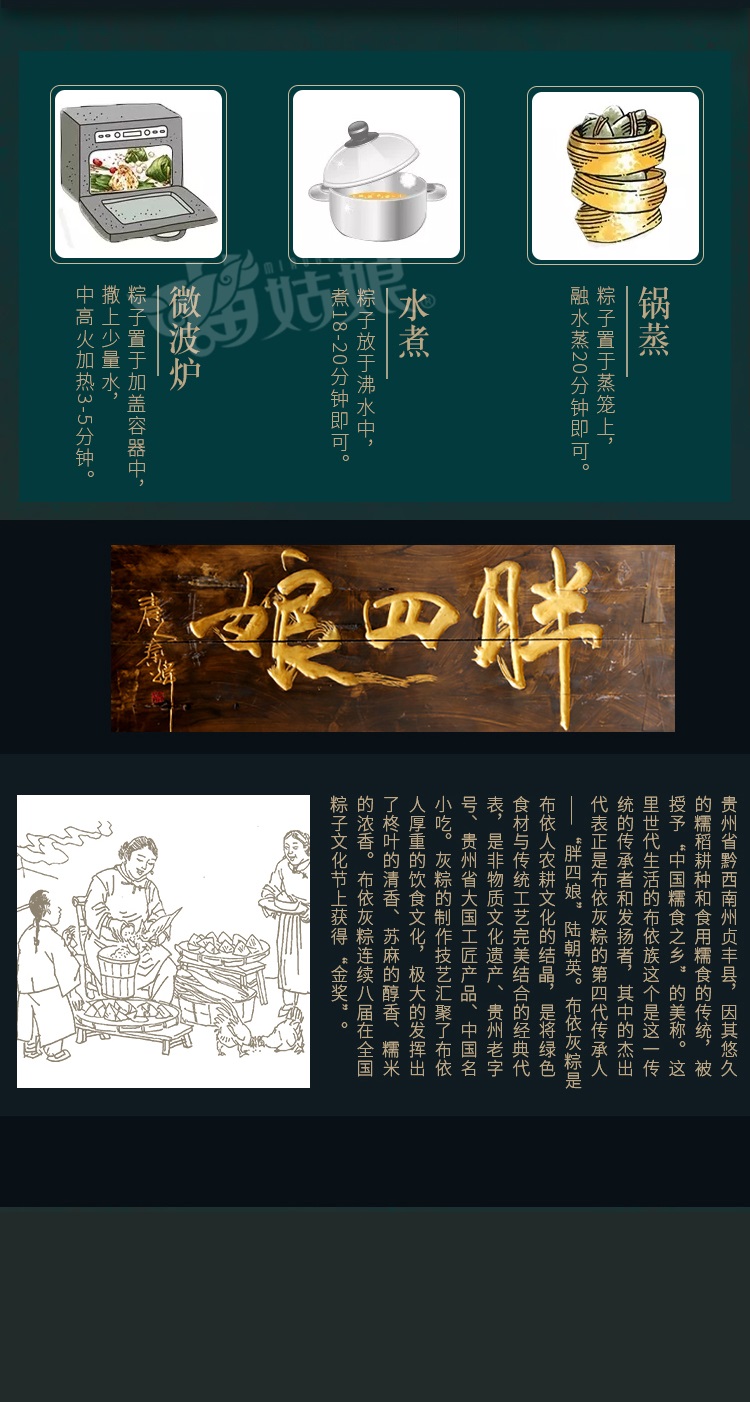 锅蒸
粽子置于蒸笼上，
融水蒸20分钟即可。
水煮
粽子放于沸水中，
煮18-20分钟即可。
微波炉
粽子置于加盖容器中，
撒上少量水，
中高火加热3-5分钟。
苗姑娘
胖四娘
贵州省黔西南州贞丰县，因其悠久
的糯稻耕种和食用糯食的传统，被
授予“中国糯食之乡”的美称。这
里世代生活的布依族这个是这一传
统的传承者和发扬者，其中的杰出
代表正是布依灰粽的第四代传承人
——“胖四娘”陆朝英。布依灰粽是
布依人农耕文化的结晶，是将绿色
食材与传统工艺完美结合的经典代
表，是非物质文化遗产、贵州老字
号、贵州省大国工匠产品、中国名
小吃。灰粽的制作技艺汇聚了布依
人厚重的饮食文化，极大的发挥出
了柊叶的清香、苏麻的醇香、糯米
的浓香。布依灰粽连续八届在全国
粽子文化节上获得“金奖”。